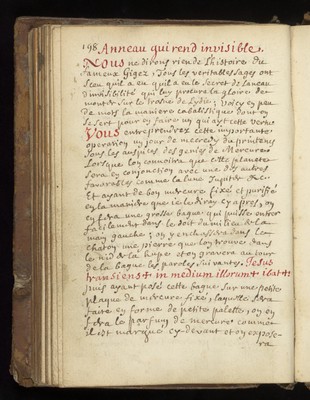 198 Anneau qui rend invisible.
Nous ne dirons rien de Lhistoire du
fameux Gigez, Tous les veritables sages ont
sceu qu'il a eu le secret de Lanneau
dinvisibilité qui luy procura la gloire de
monter sur le trosne de Lydie; Voicy en peu
de mots la maniere cabalistique dont on
se sert pour en faire un qui ayt cette vertu
Vous entreprendrez cette importante
operation un jour de mecredy du printems
sous les auspices des genies de Mercure
Lorsque lon connoitra que cette planete
sera en conjonction avec une des autres
favorables comme la lune Jupiter &c.
Et ayant de bon mercure fixé et purifié
en la maniere que ie le diray cy apres, on
en fera une grosse bague qui puisse entrer
facilement dans le doit du milieu de la
main gauche; on y enchassera dans le
chaton une pierre que lon trouve dans
le nid de la hupe et on gravera autour
de la bague les paroles suivantes. Jesus
transiens + in medium illorum + ibat +
puis ayant posé cette bague sur une petite
plaque de mercure fixé, laquelle sera
faite en forme de petite palette, on en
fera le parfum de mercure comme
il est marqué cy devant et on expose-
ra